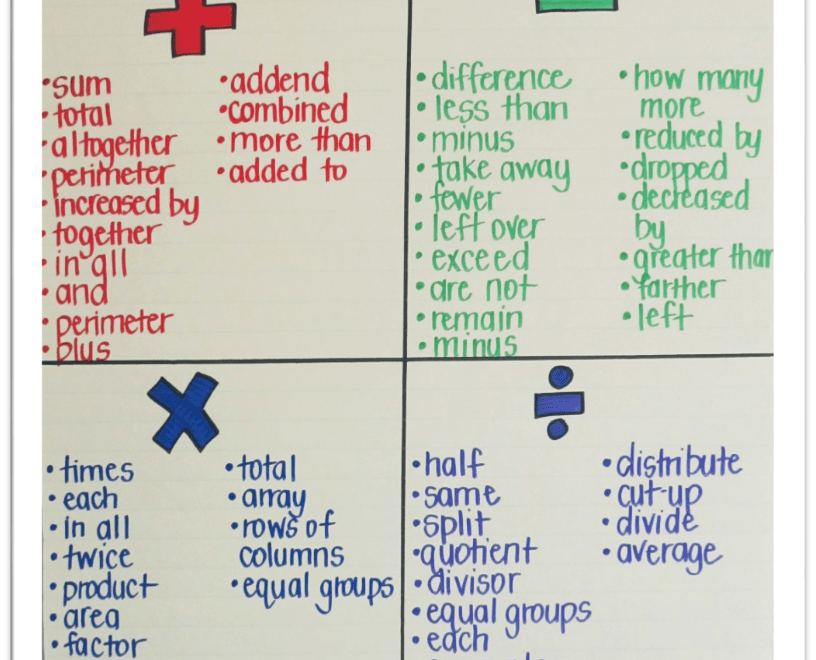 • sum
• total
• altogether
• perimeter
• increased by
• together
• in all
• and
• perimeter
• plus
• addend
• combined
• more than
• added to
• difference
• less than
• minus
• take away
• fewer
• left over
• exceed
• are not
• remain
• minus
• how many
more
• reduced by
• dropped
• decreased
by
• greater than
• farther
• left
• times
• each
• in all
• twice
• product
• area
• factor
• total
• array
• rows of
columns
• equal groups
• half
• same
• split
• quotient
• divisor
• equal groups
• each
• distribute
• cut-up
• divide
• average